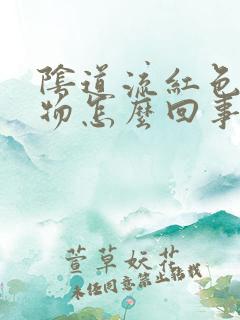 陰道流紅色
物怎麼回事
萱草妖花
未經同意禁止轉載